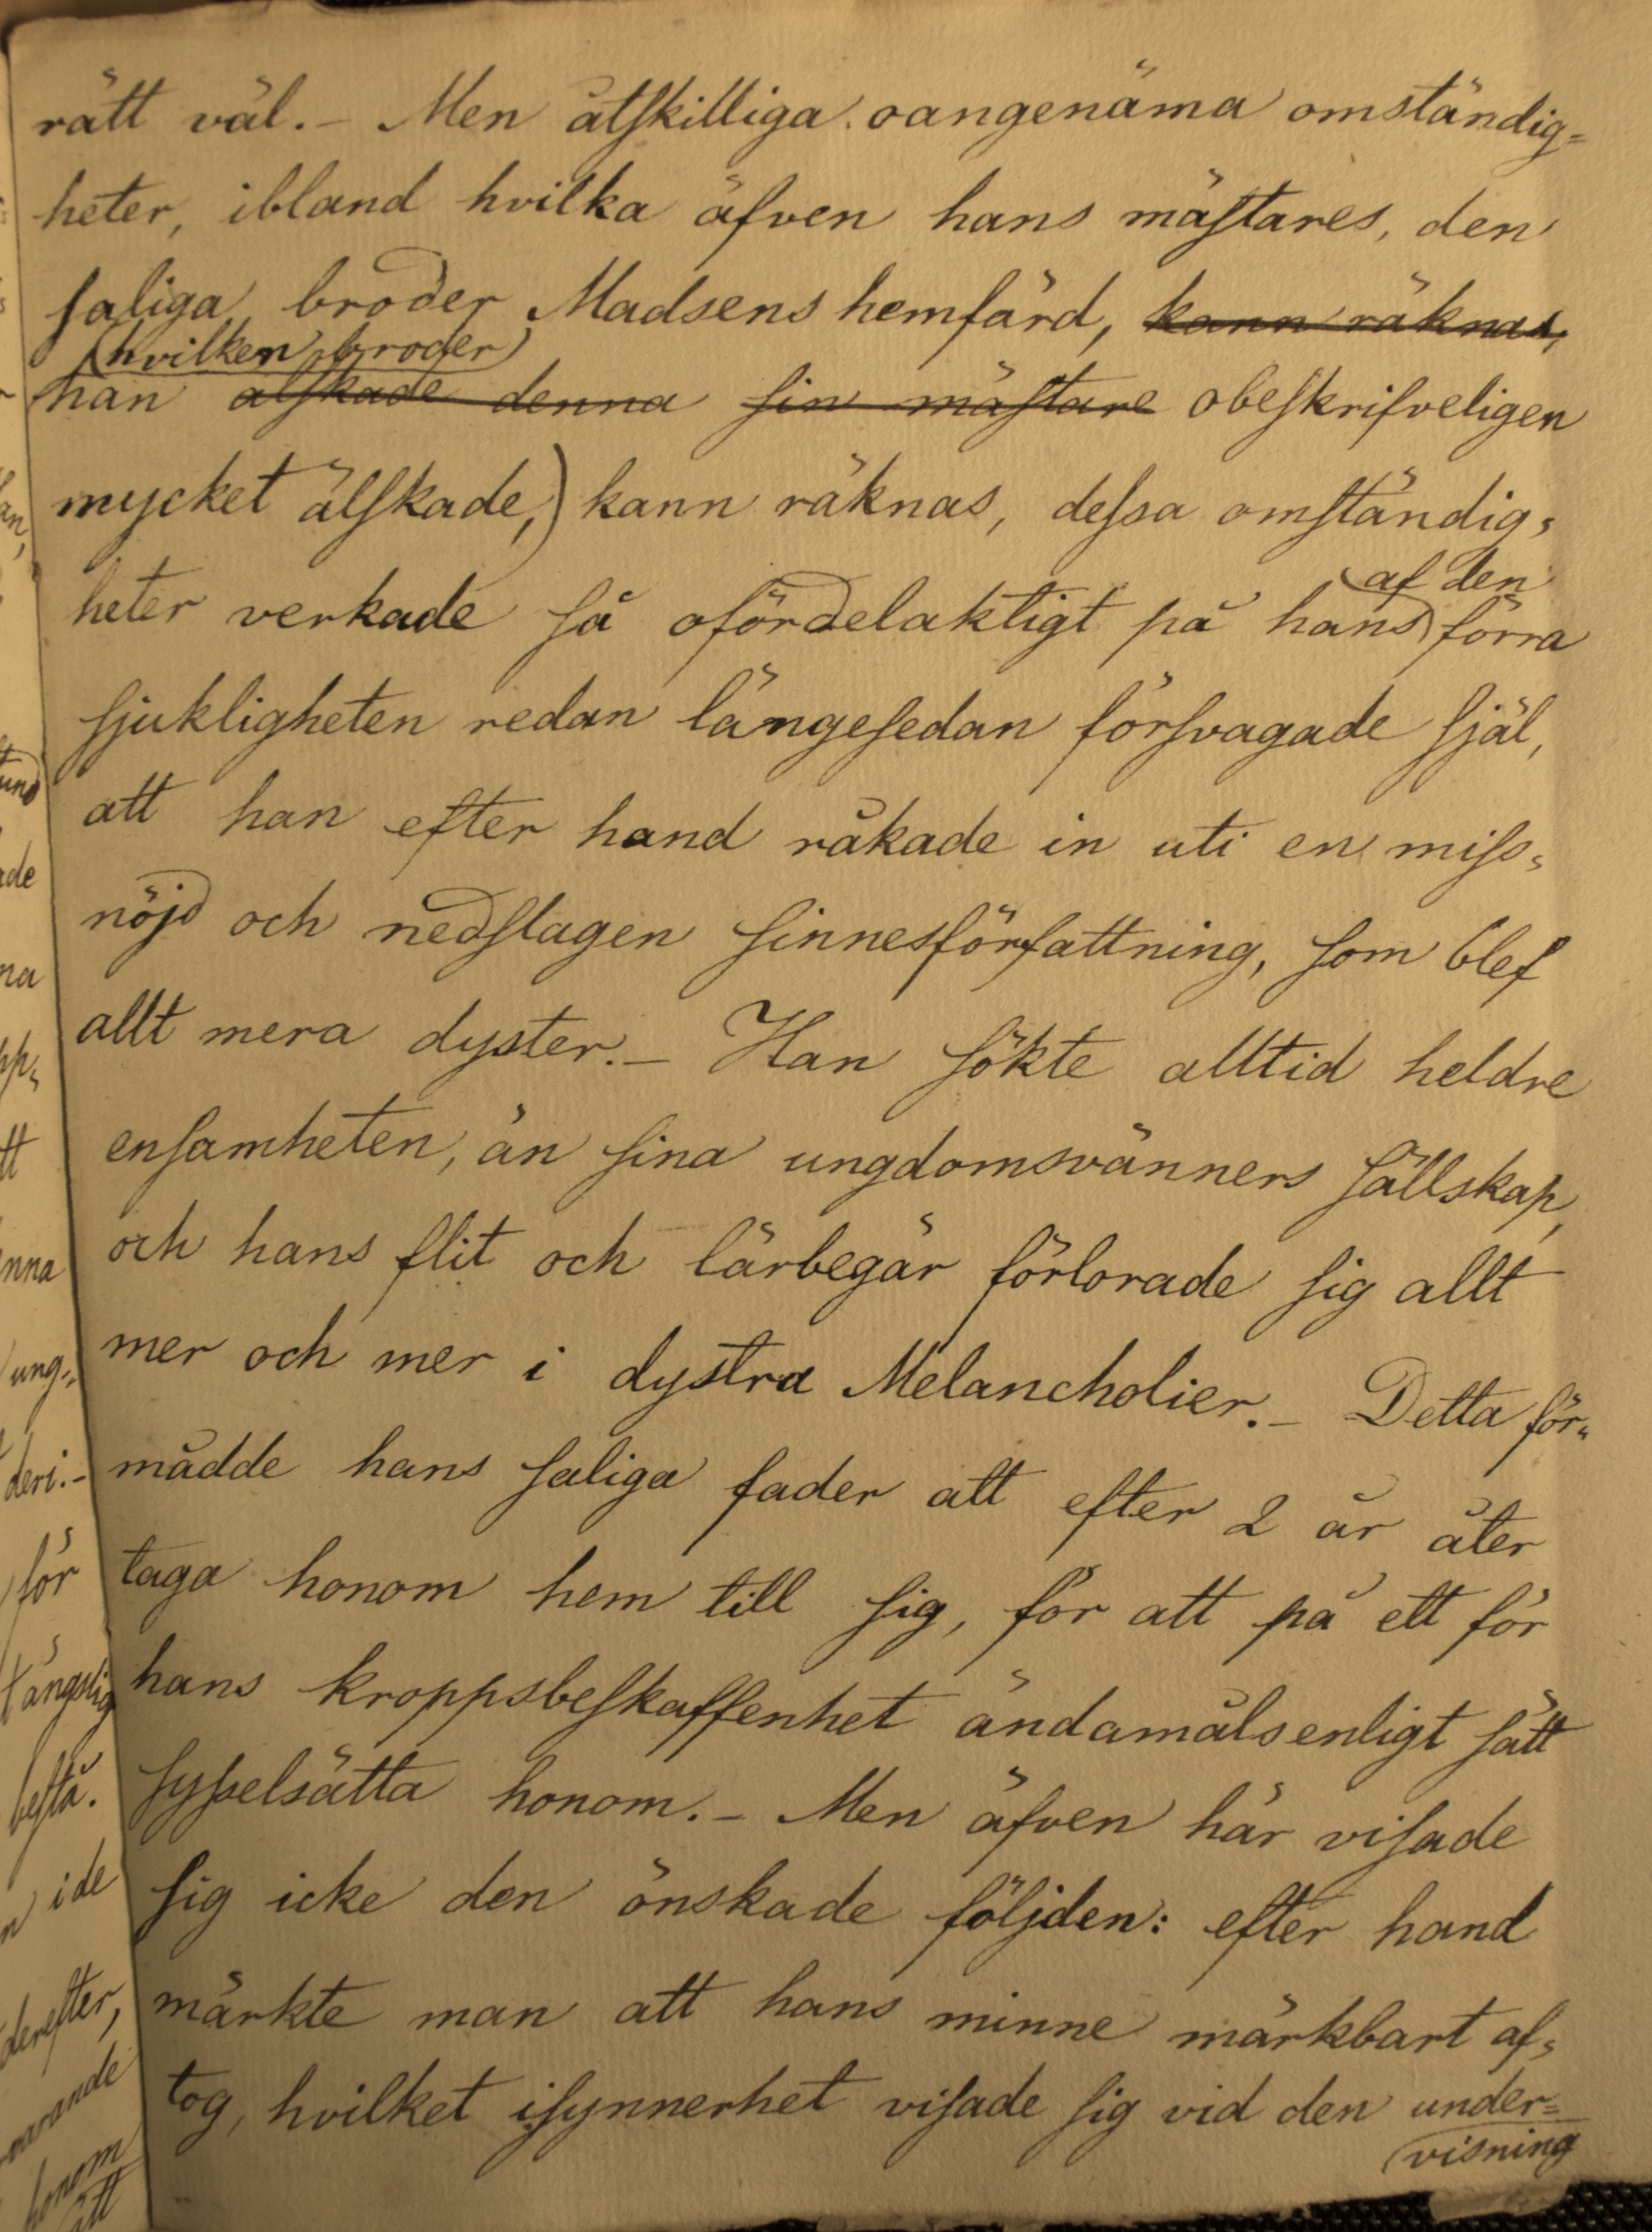 rätt väl. – Men åtſkilliga oangenäma omständig=
heter, ibland hvilka äfven hans mäſtares, den
ſaliga broder Madsens hemfärd, kann räknas,
(hvilken broder)
han älſkade denna ſin mäſtare obeſkrifveligen
mycket älſkade,) kann räknas, deſsa omſtändig=
af den
heter verkade ſå ofördelaktigt på hans förra
ſjukligheten redan längeſedan förſvagade ſjäl,
att han efter hand råkade in uti en miſs=
nöjd och nedſlagen ſinnesförfattning, ſom blef
allt mera dyster. – Han ſökte alltid heldre
enſamheten, än ſina ungdomsvänners ſällskap,
och hans flit och lärbegär förlorade ſig allt
mer och mer i dystra Melancholier. – Detta för=
mådde hans ſaliga fader att efter 2 år åter
taga honom hem till ſig, för att på ett för
hans kroppsbeſkaffenhet ändamålsenligt ſätt
ſyſselsätta honom. – Men äfven här viſade
ſig icke den önskade följden: efter hand
märkte man att hans minne märkbart af=
tog, hvilket iſynnerhet viſade ſig vid den under=
visning